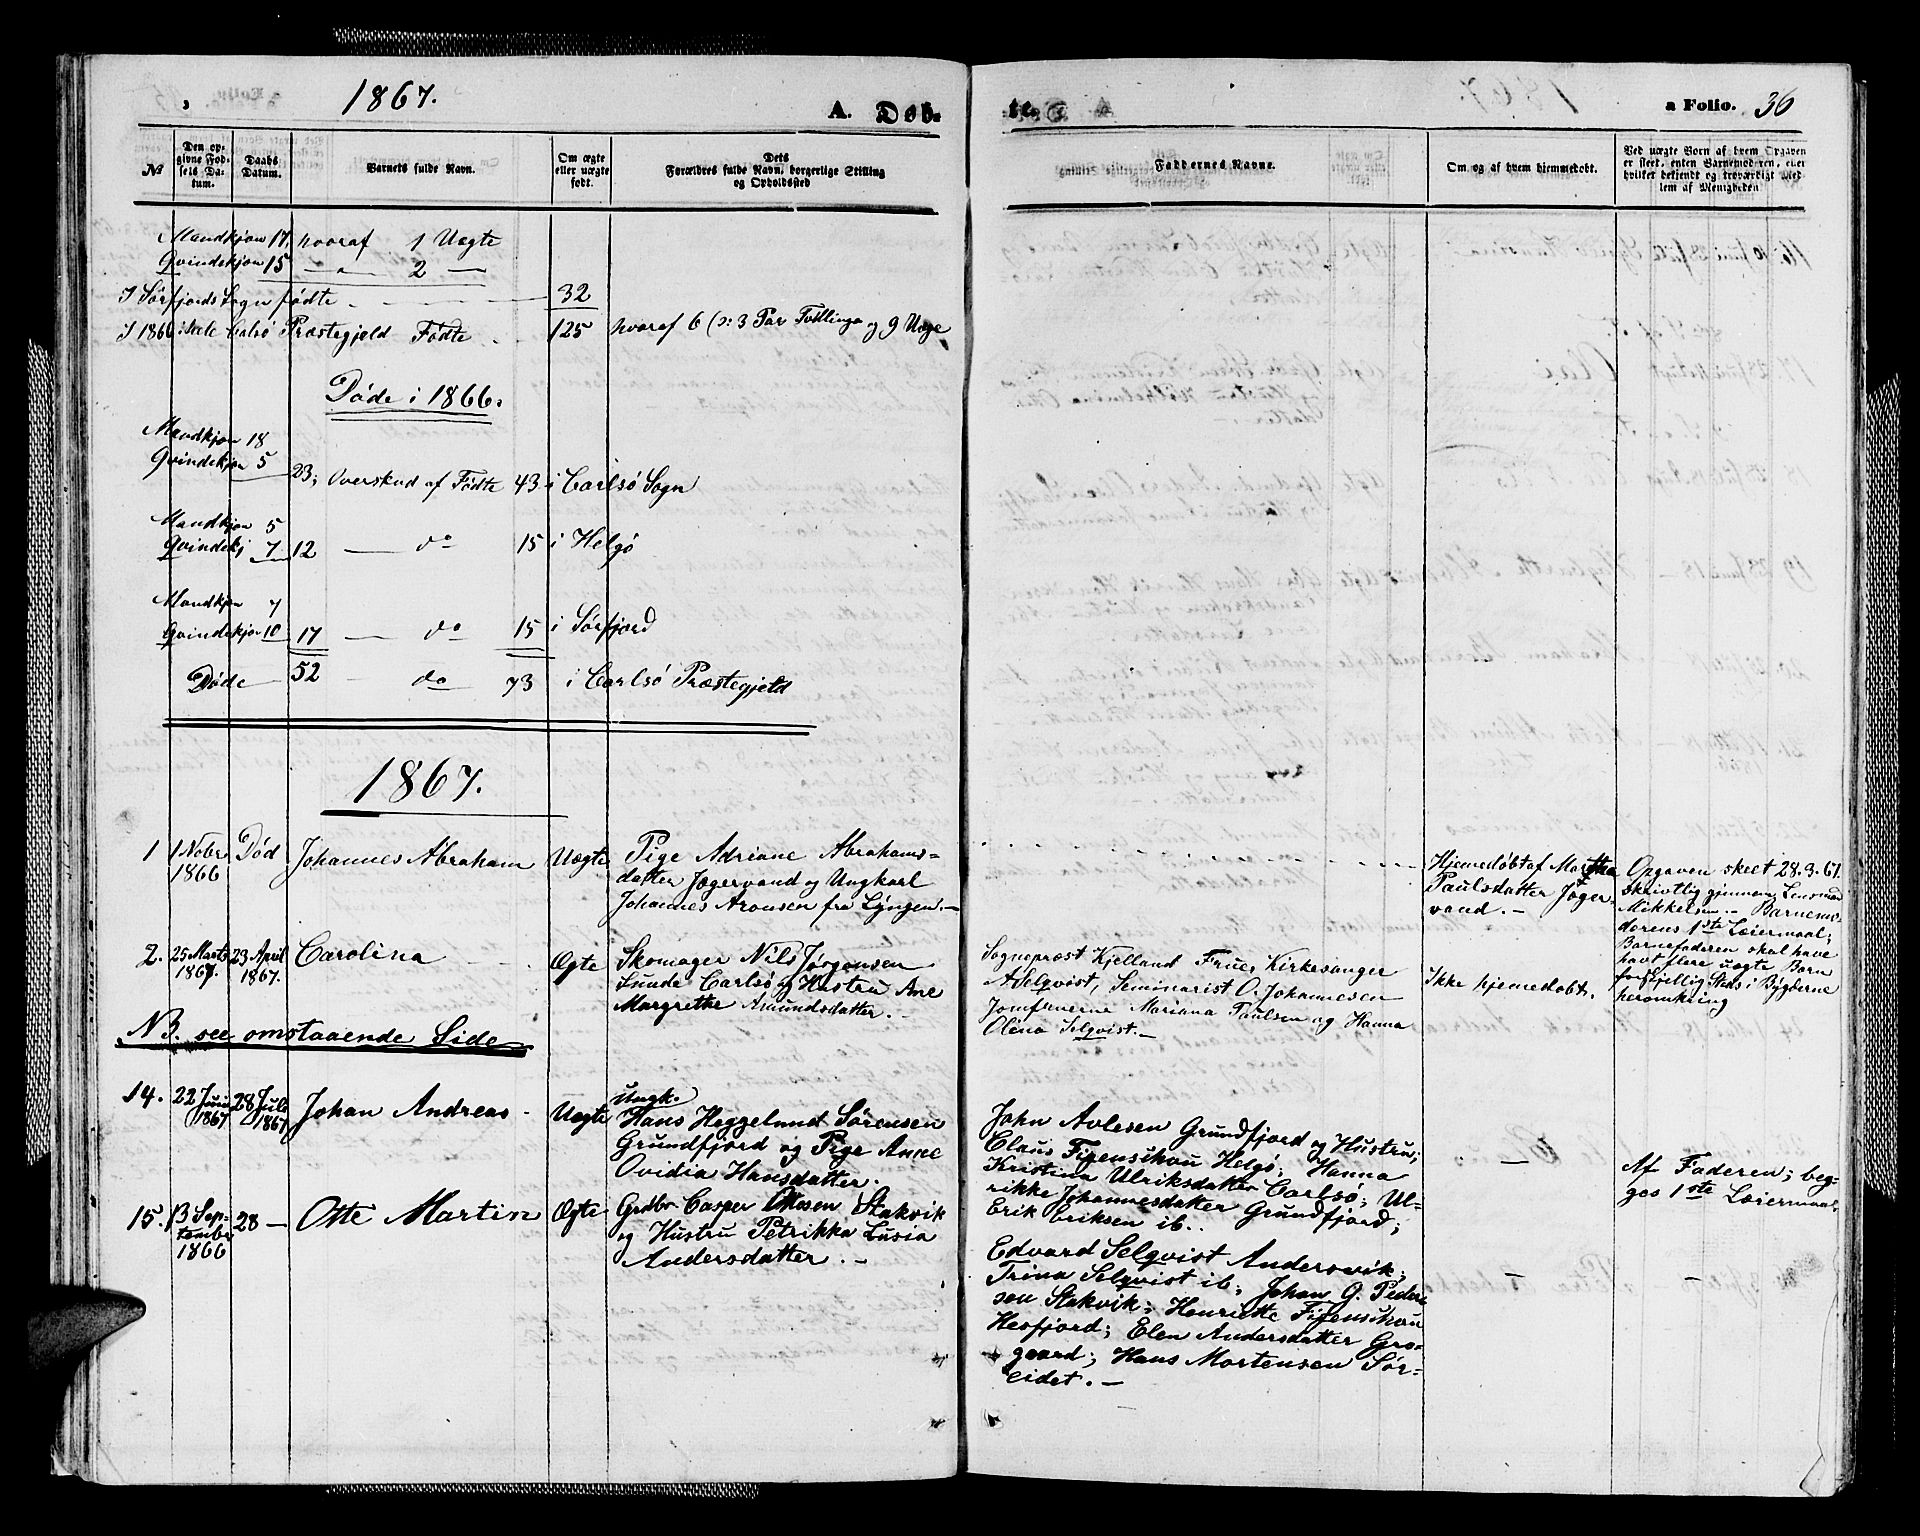 1867.
A. Døb-
te.
a Folio. 36
№
Den op-
givne Fød-
sels Da-
tum.
Daabs
Datum.
Barnets fulde Navn.
Om ægte
eller uægte
født.
Dets
Forældres fulde Navn, borgerlige Stilling
og Opholdssted
Faddernes Navne.
Om og af hvem hjemmedøbt.
Ved uægte Børn af hvem Opgaven
er skeet, enten Barnemoderen, eller
hvilket bekjendt og troværdigt Med-
lem af Menigheden
Mandkjøn 17. hvoraf 1 Uægte
Qvindekjøn 15 — " — 2 —
I Sørfjords Sogn fødte - — — 32
I 1866 i hele Carlsø Præstegjeld Fødte - 125 hvoraf 6 (ɔ: 3 Par Tvillinge og 9 Uægte
Døde i 1866.
Mandkjøn 18
Qvindekjøn 5 23; Overskud af Fødte 43 i Carlsø Sogn
Mandkjøn 5
Qvindekj 7 12 — do 15 i Helgø
Mandkjøn 7
Qvindekjøn 10 17 — do 15 i Sørfjord
Døde — 52 — do — 73 i Carlsø Præstegjeld
1867.
1 1 Nobr
1866 Død Johannes Abraham Uægte Pige Adriane Abrahams-
datter Jægervand og Ungkarl
Johannes Aronsen fra Lyngen. —
Hjemedøbt af Martha
Paulsdatter Jæger-
vand. —
Opgaven skeet 28.3.67.
skrivtlig gjennem Lensmand
Mikkelsen. — Barnemo-
derens 1ste Leiermaal;
Barnefaderen skal have
havt flere uægte Børn
forskjellig Steds i Bygderne
heromkring
2. 25 Marts
1867. 23 April
1867. Carolina — - Ægte Skomager Nils Jørgensen
Lunde Carlsø og Hustru Ane
Margrethe Amundsdatter. —
Sogneprest Kjelland Frue, Kirkesanger
A Selqvist, Seminarist O. Johannesen
Jomfruerne Mariana Paulsen og Hanna
Olina Selqvist. —
Ikke hjemedøbt.
NB. see omstaaende Side
14. 22 Juni
1867 28 Juli
1867 Johan Andreas - Uægte Ungk.
Hans Heggelund Sørensen
Grundfjord og Pige Anne
Ovidia Hansdatter.
John Avlesen Grundfjord og Hustru;
Claus Figenschou Helgø; Hanna
Kristina Ulriksdatter Carlsø; Ul-
rikke Johannesdatter Grundfjord;
Erik Eriksen ib..
—
Af Faderen; beg-
ges 1ste Leiermaal
15. 13 Sep-
tember
1866 28 — Otte Martin Ægte Grdbr Casper Ottesen Stakvik
og Hustru Petrikka Lusia
Andersdatter. —
Edvard Selqvist Andersvik;
Trina Selqvist ib; Johan G. Peder-
sen Stakvik; Henriette Figenschou
Hesfjord; Elen Andersdatter Gro-
gaard; Hans Mortensen Sør-
eidet. —
—
—